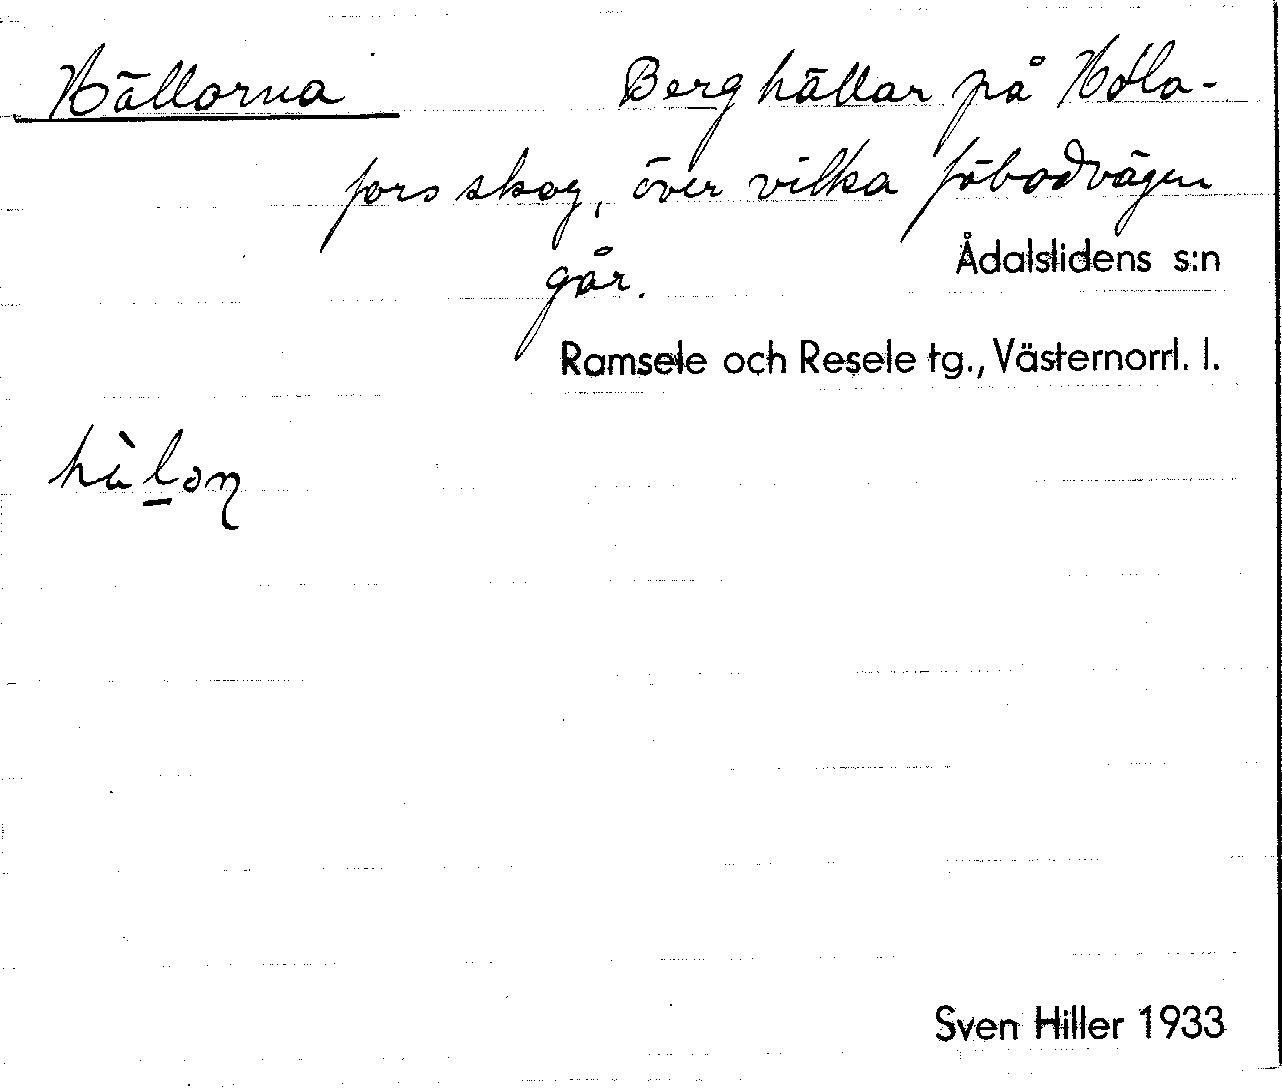 Hällorna Berghällar på Hola-
fors skog, över vilka fäbodvägen
går. Ådalslidens s:n
Ramsele och Resele tg., Västernorrl. l.
Sven Hiller 1933